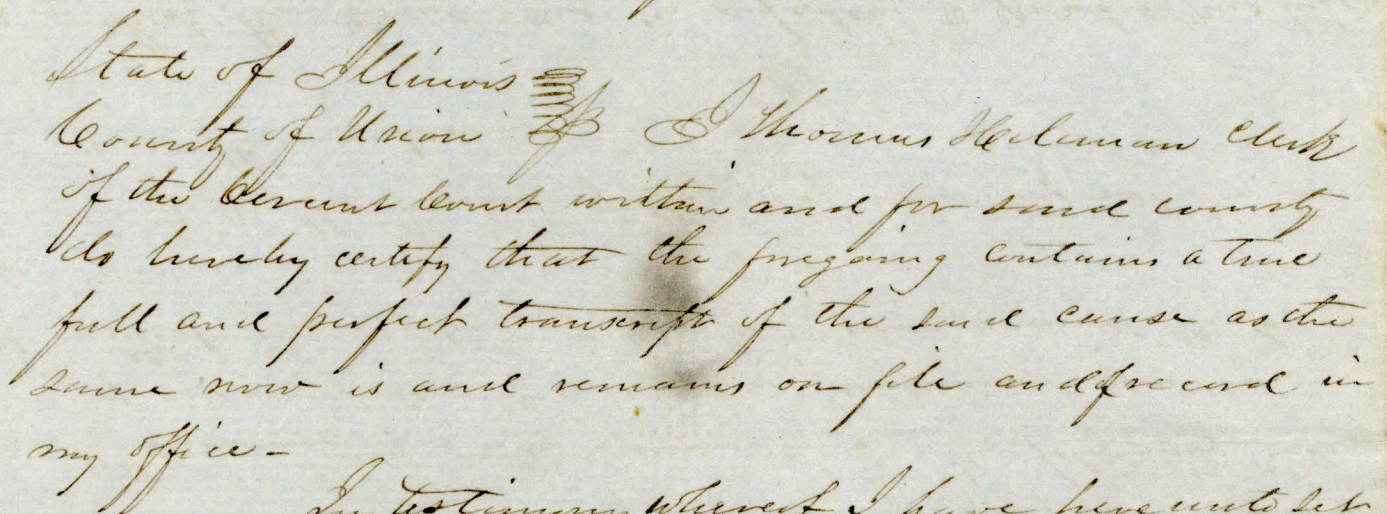 State of Illinois
County of Union SS I Thomas Hileman Clerk
of the Circuit Court within and for said county
do hereby certify that the foregoing contains a true
full and perfect transcript of the said cause as the
same now is and remains on file and of record in
my office -
In testimony whereof I have hereunto set